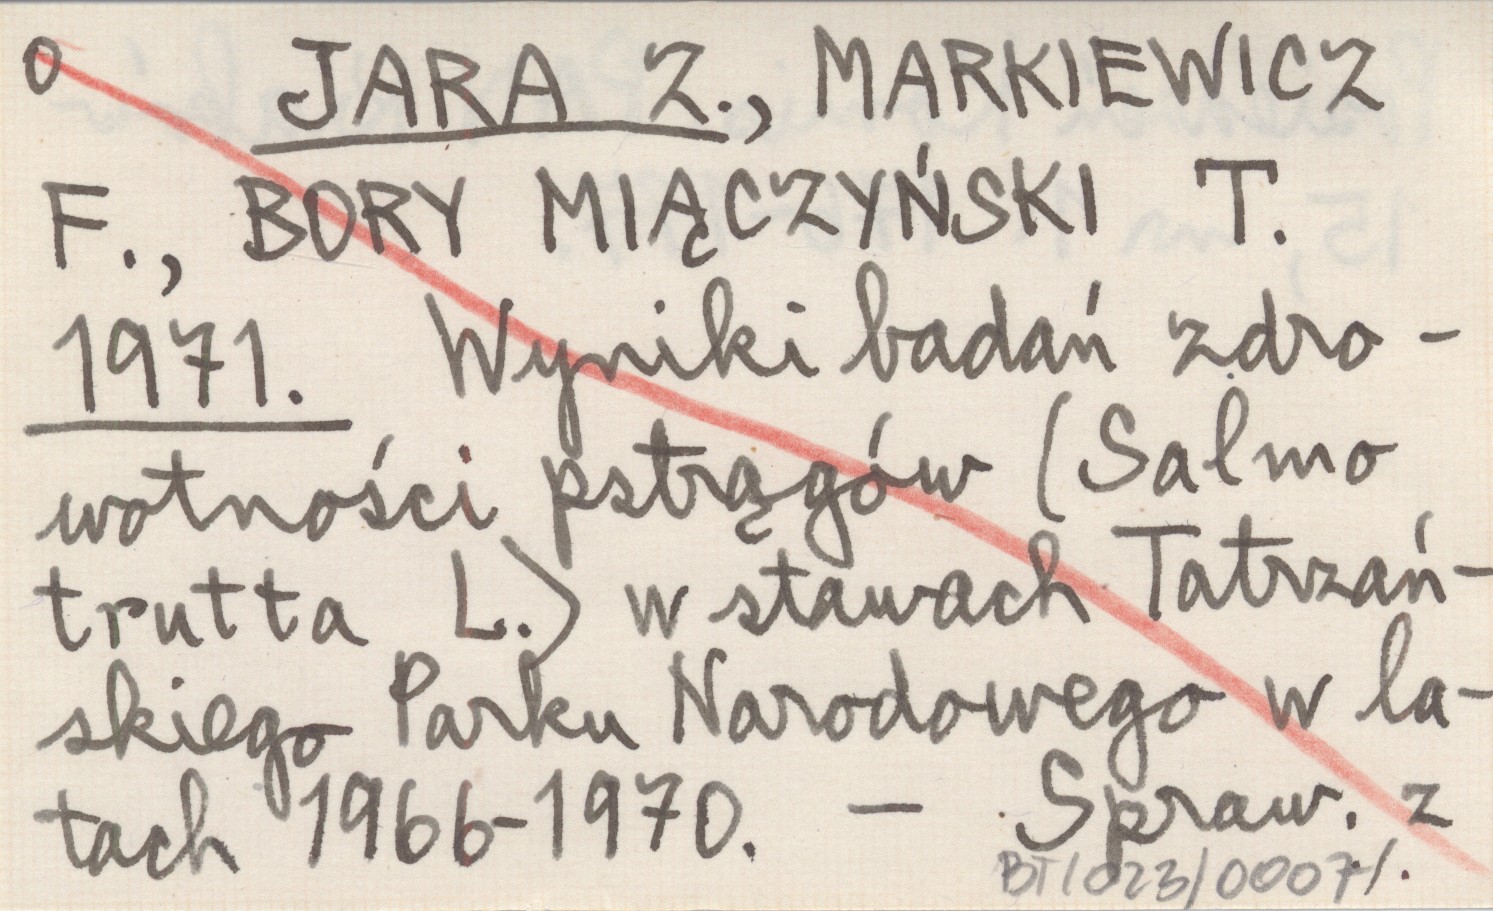 o JARA Z., MARKIEWICZ
F., BORY MIĄCZYŃSKI T.
1971. Wyniki badań zdro-
wotności pstrągów (Salmo
trutta L.) w stawach Tatrzań-
skiego Parku Narodowego w la-
tach 1966-1970. — Spraw. z
BT/023/0007/.